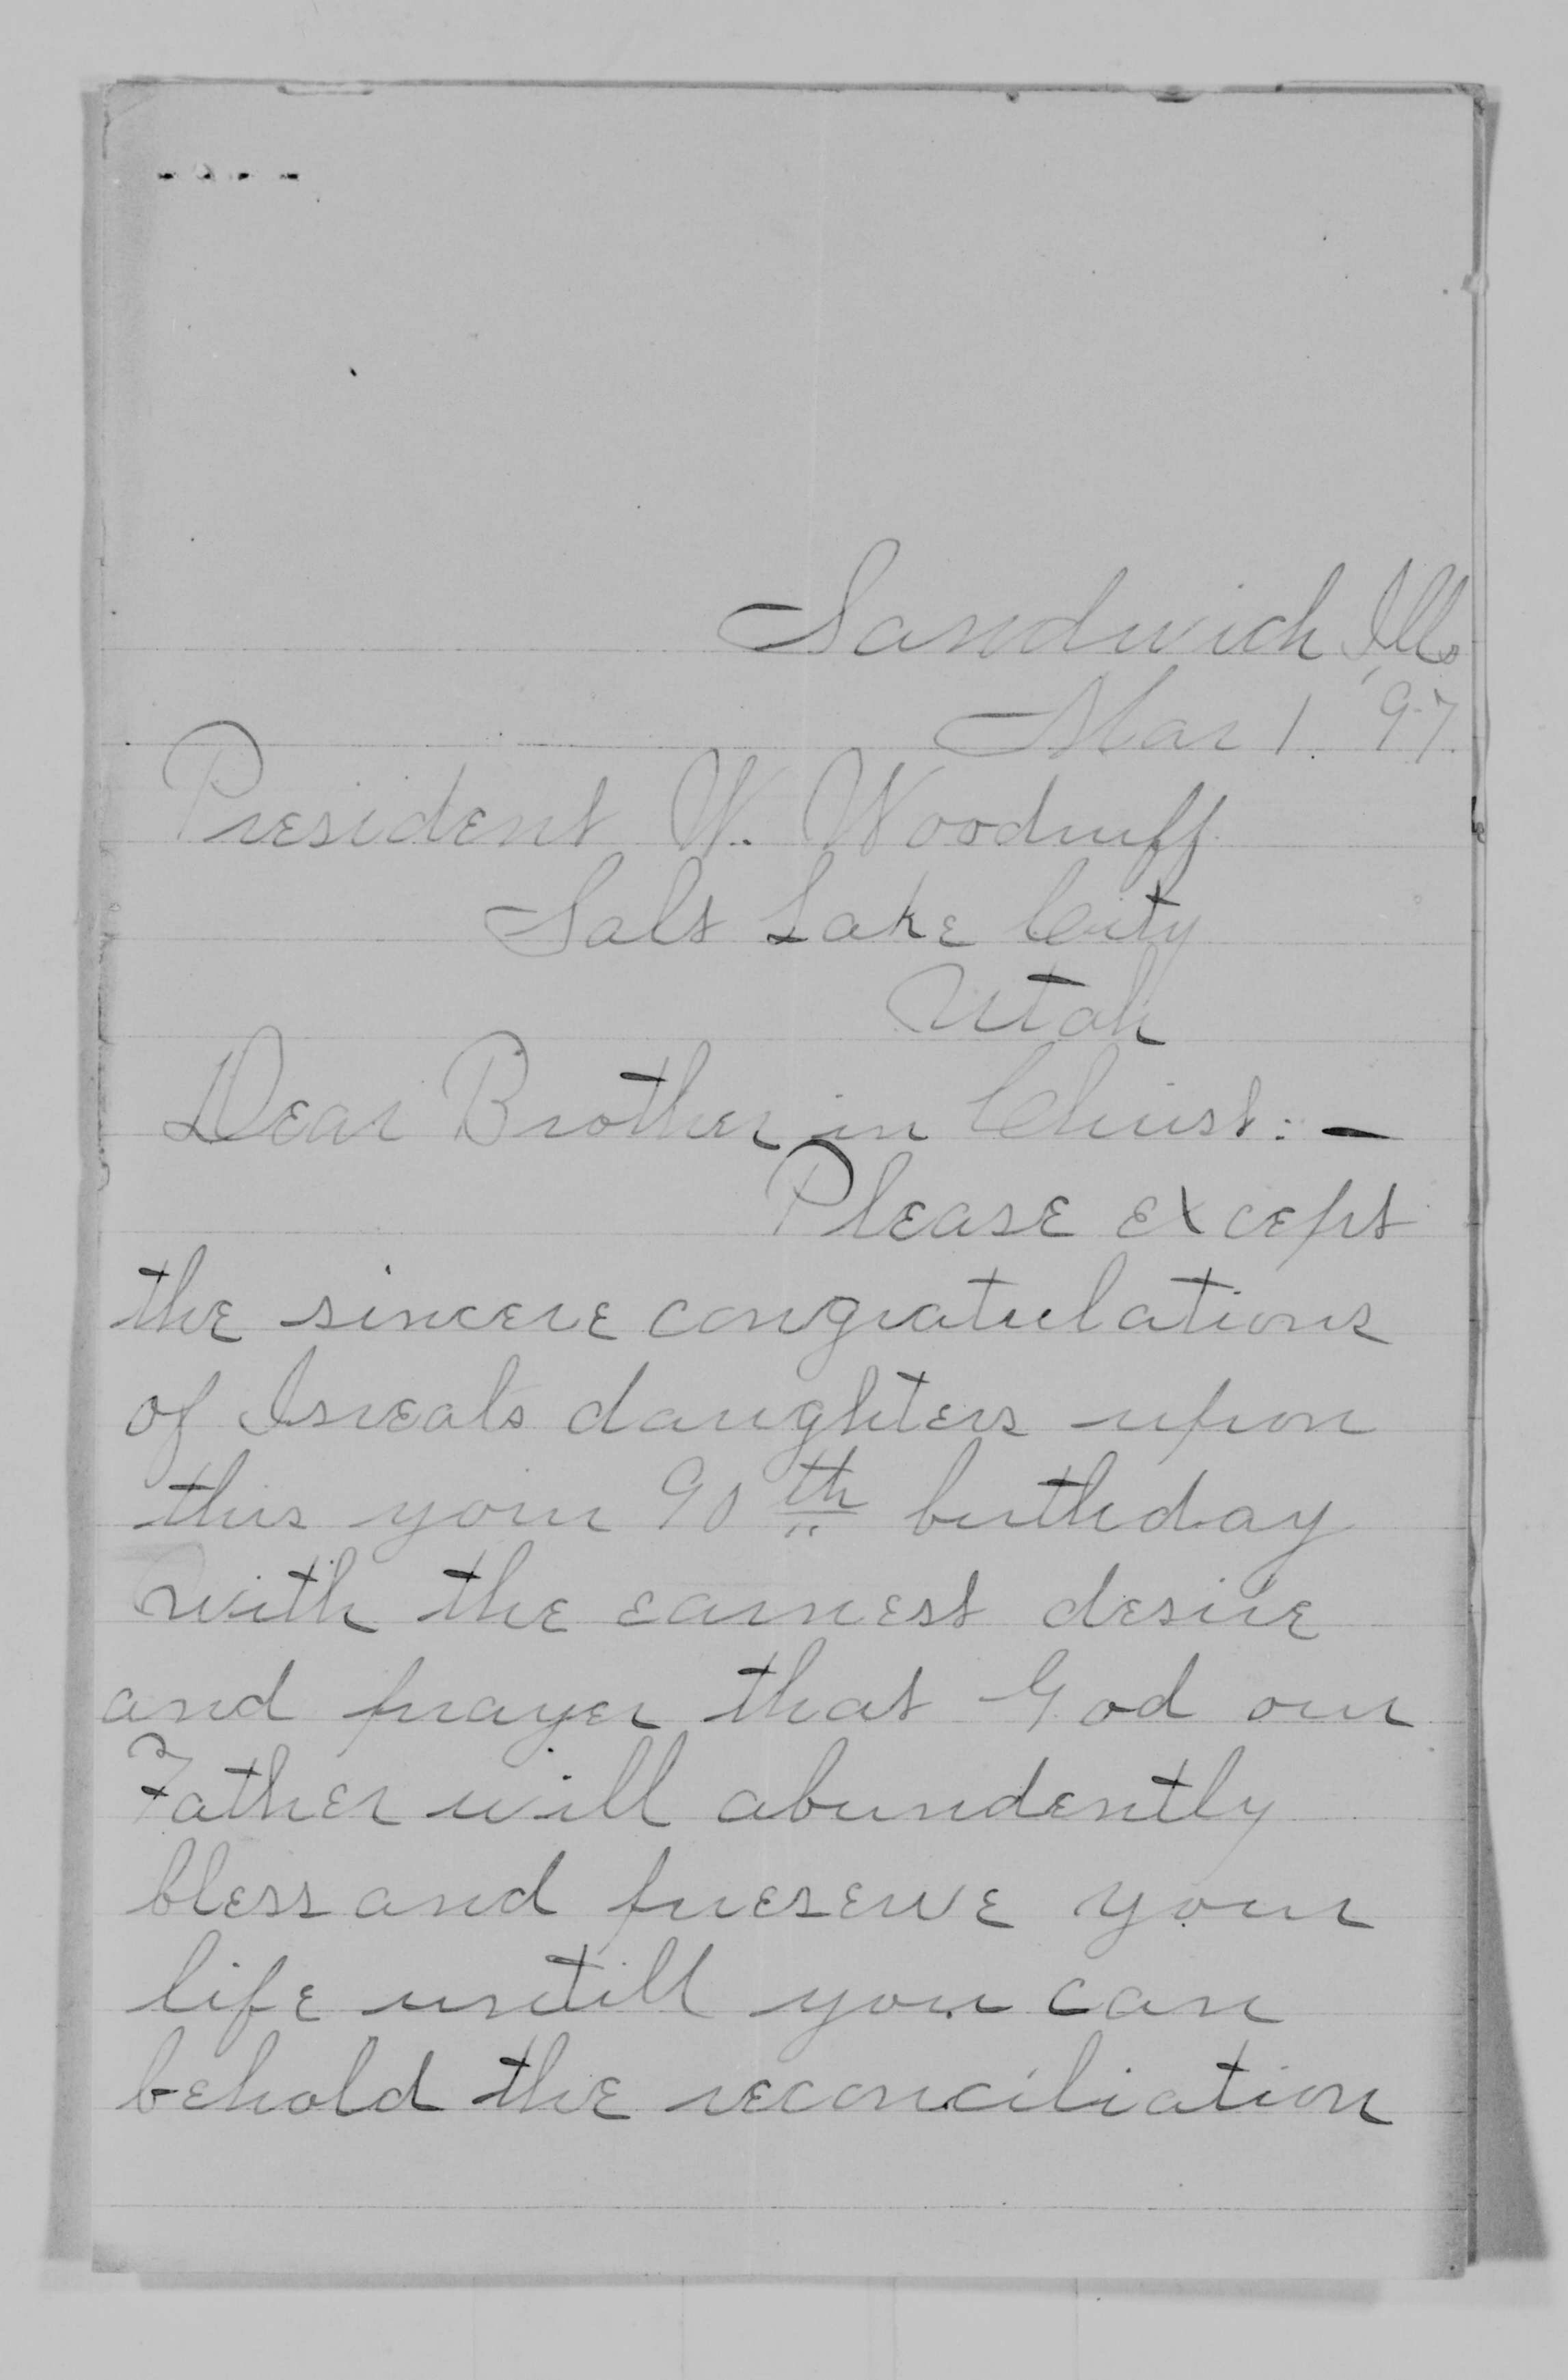 Sandwich, Ills
Mar 1. '97.
President W. Woodruff
Salt Lake City
Utah
Dear Brother in Christ: —
Please except
the sincere congratulations
of Isreals daughters upon
this your 90th birthday
with the earnest desire
and prayer that God our
Father will abundently
bless and preserve your
life untill you can
behold the reconciliation